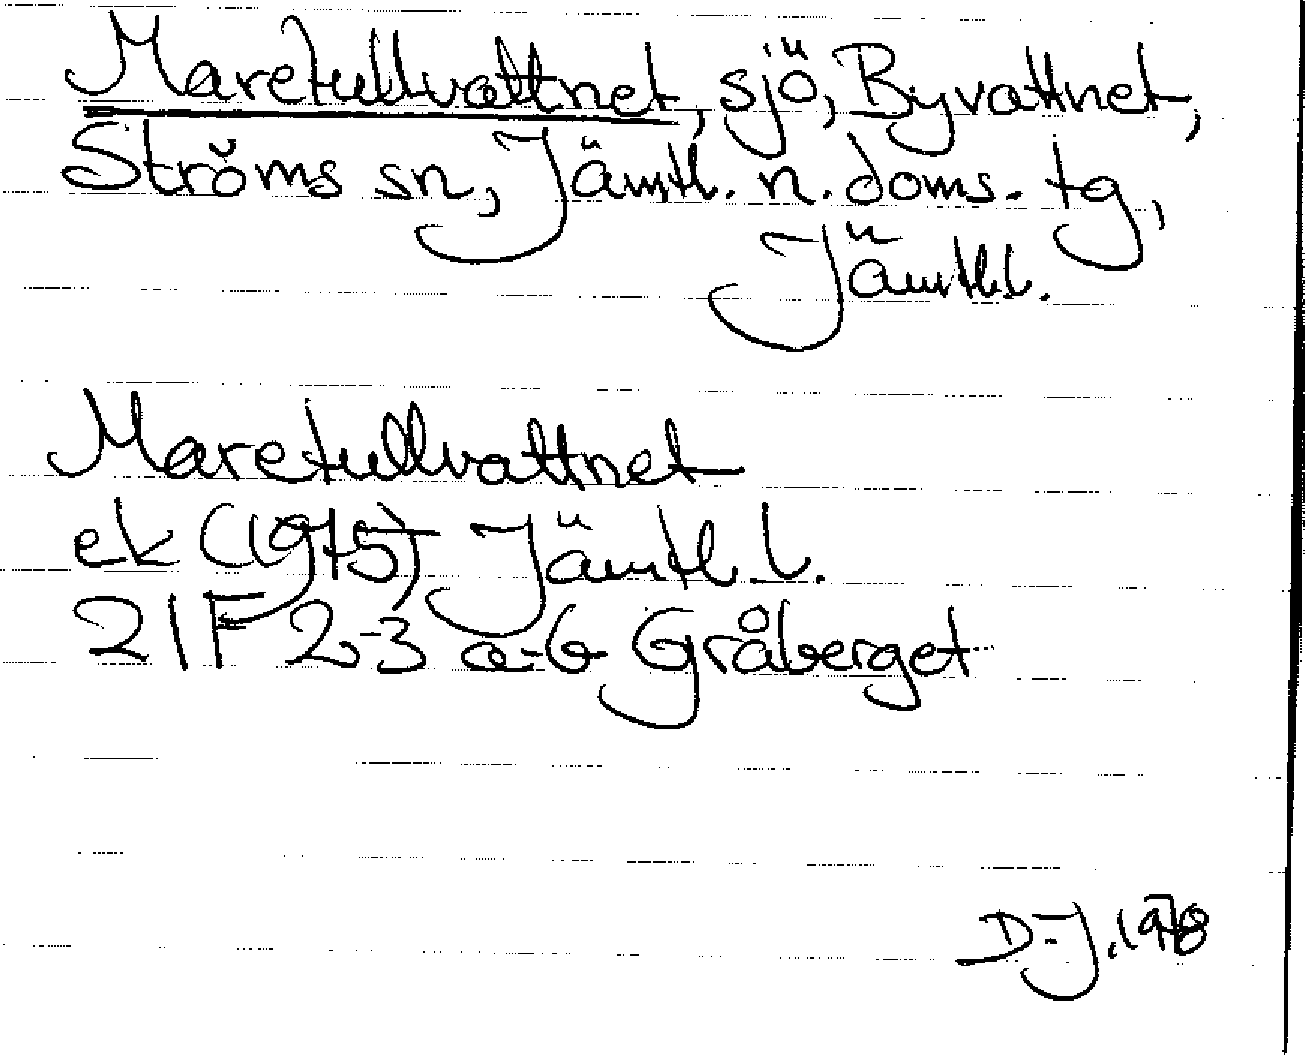 Maretullvattnet, sjö, Byvattnet,
Ströms sn, Jämtl. n. doms. tg,
Jämtl.l.
Maretullvattnet
ek (1975) Jämtl. l.
21F 2-3 a-b Gråberget
D-J. 1978